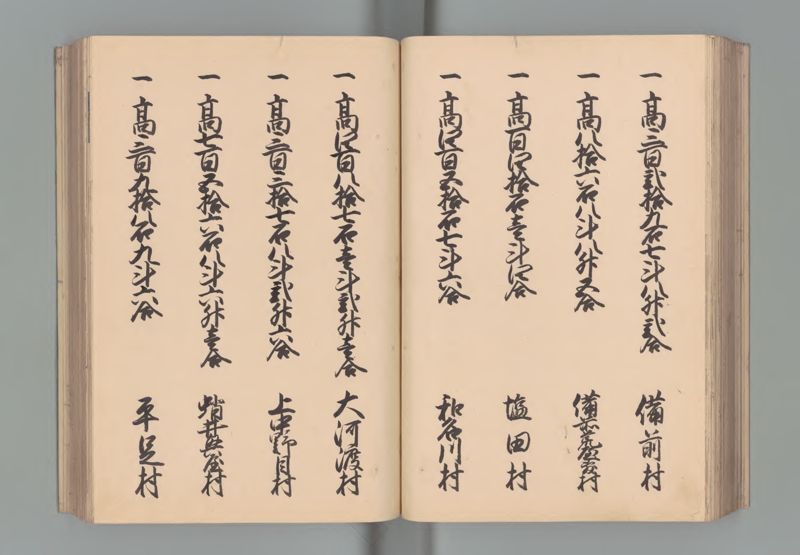 一 高三百弐拾九石七斗八升弐合 備前村
一 高八拾六石八斗八升五合 備前
一 高百四拾石壱斗四合 塩田村
一 高四百五拾石七斗六合 和名川村
一 高四百八拾七石壱斗弐升壱合 大河渡村
一 高三百三拾七石八斗弐升六合 上中野目村
一 高七百五拾六石八斗六升壱合 蛸井興屋村
一 高三百九拾八石九斗六合 平足村